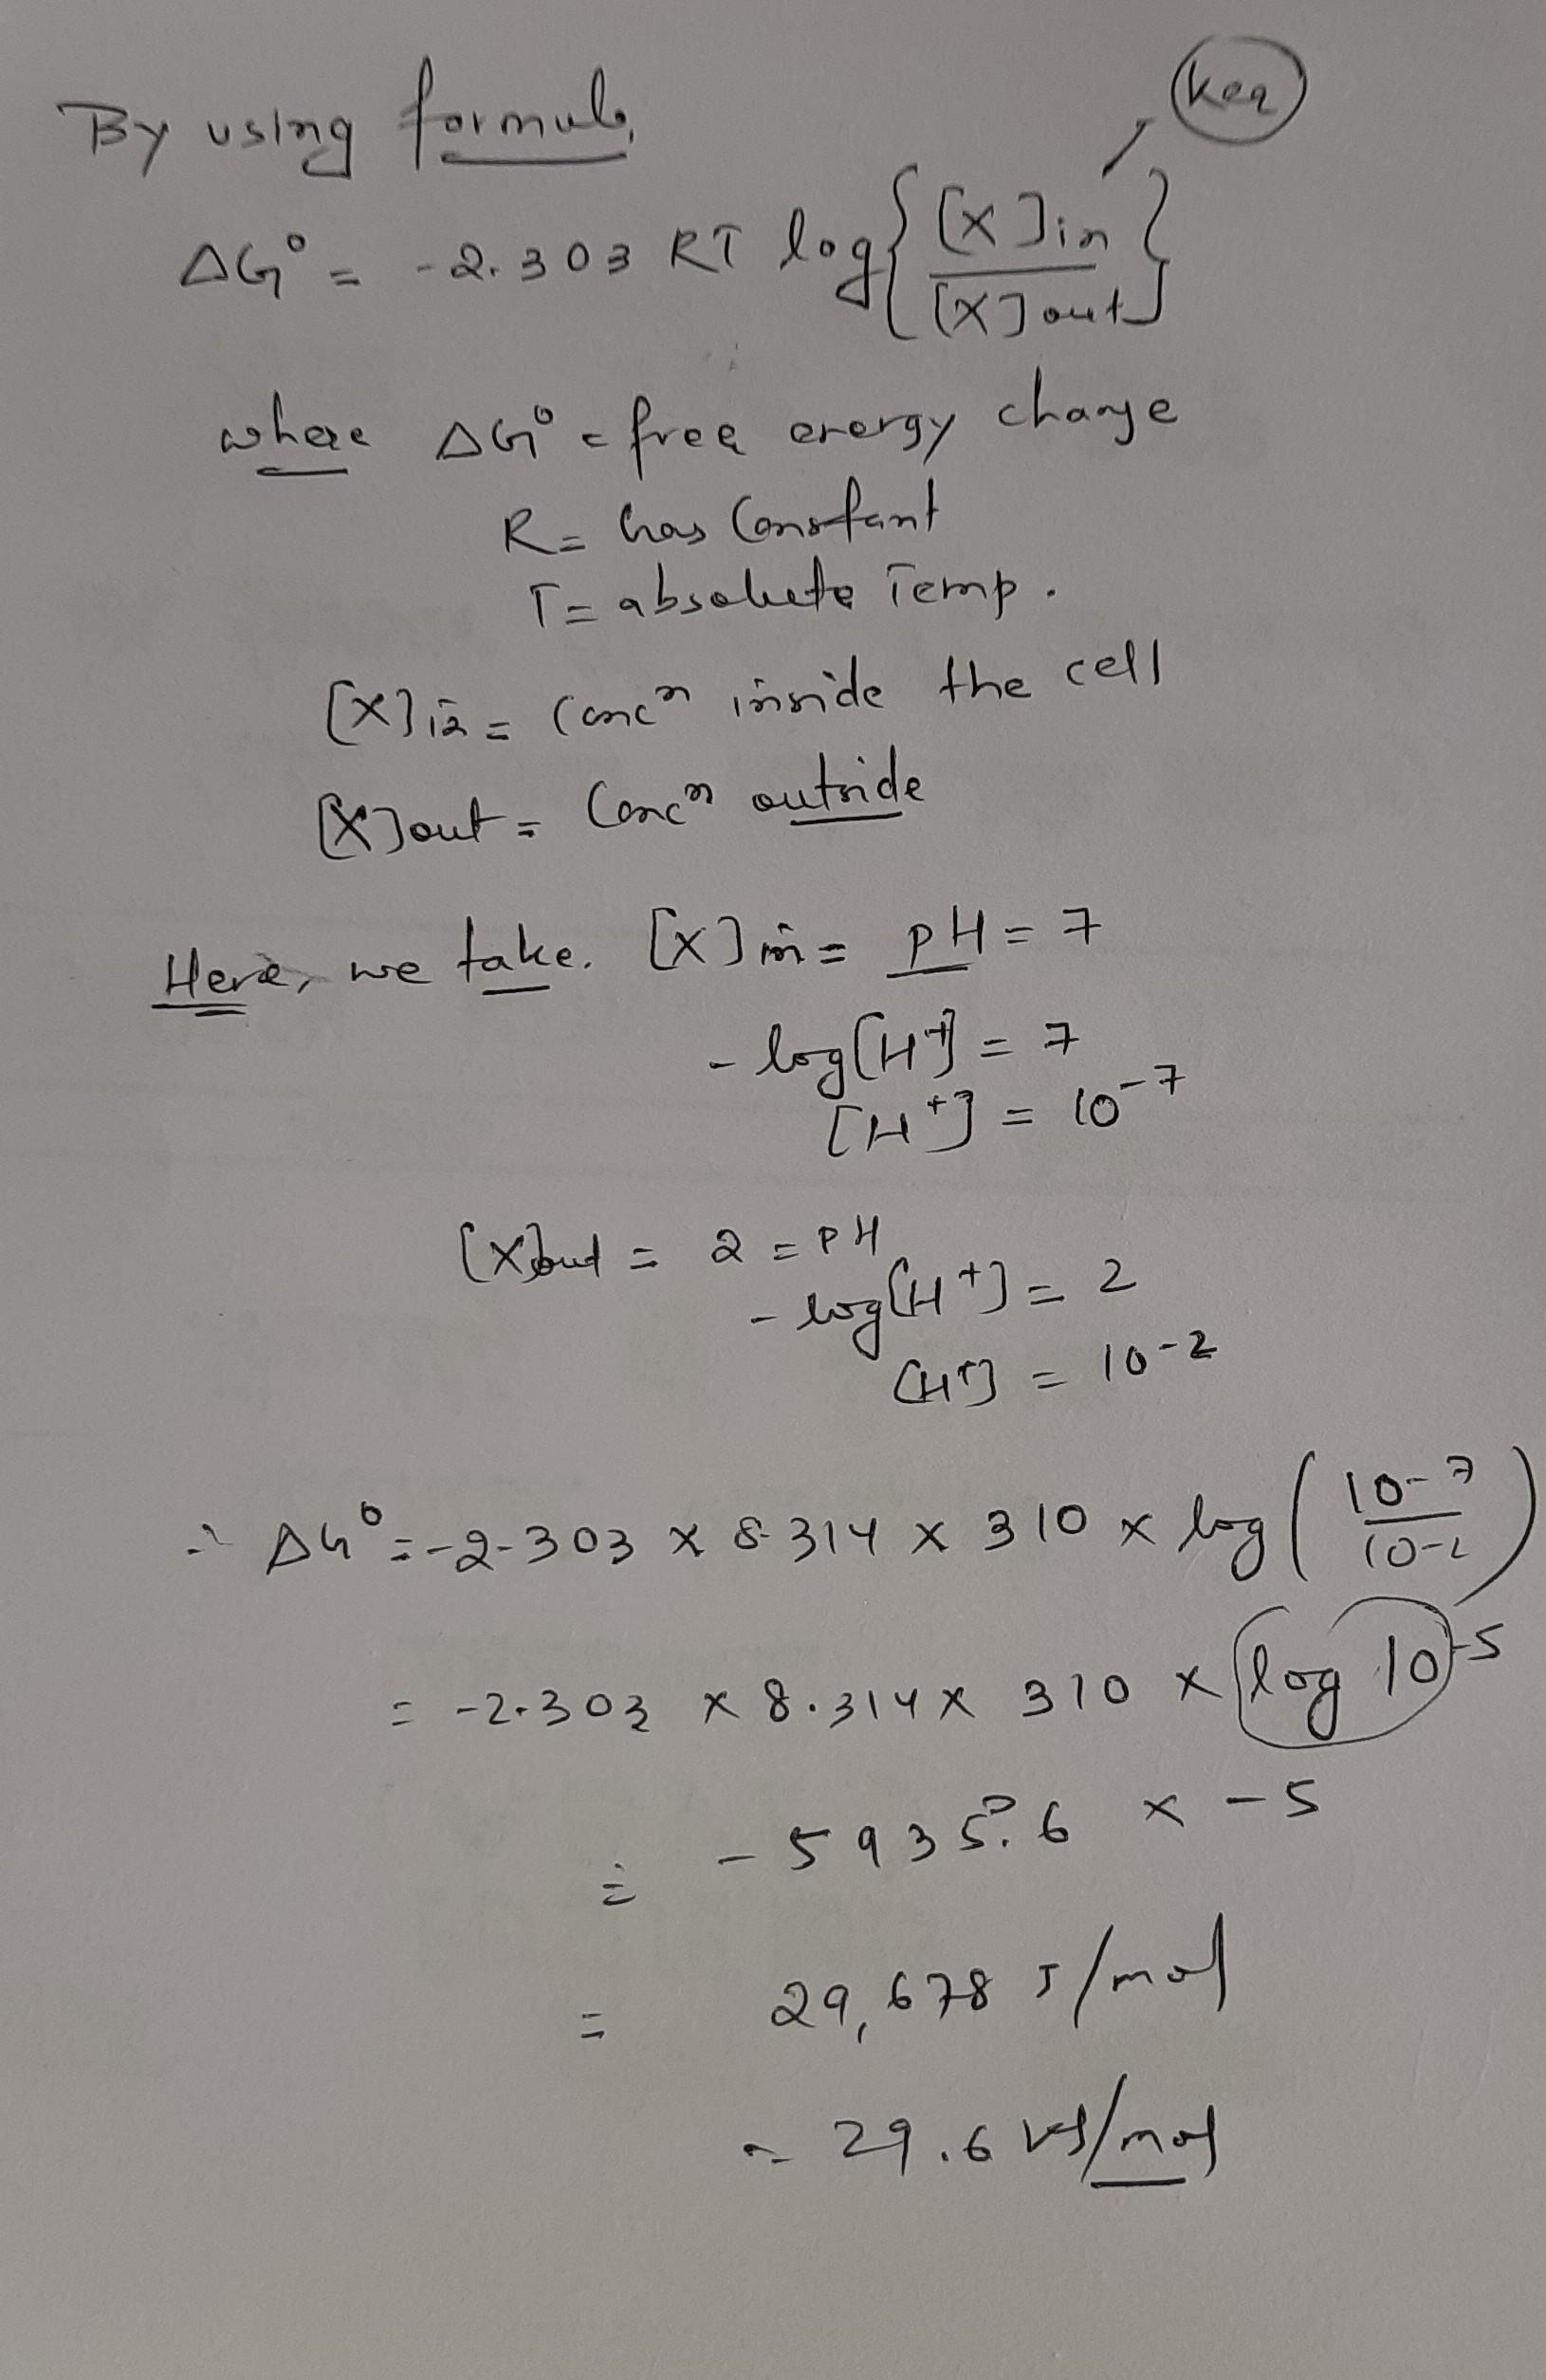 Keq
By using formula,
ΔG° = -2.303 RT log{[X]in/[X]out}
where ΔG° = free energy change
R = Gas Constant
T = absolute Temp.
[X]in = Concn inside the cell
[X]out = Concn outside
Here, we take. [X]in = pH = 7
- log[H+] = 7
[H+] = 10-7
[X]out = 2 = PH
- log[H+] = 2
[H+] = 10-2
∴ ΔG° = -2.303 x 8.314 x 310 x log(10-7/10-2)
= -2.303 x 8.314 x 310 x log 10-5
= -5935.6 x -5
= 29,678 J/mol
= 29.6 kJ/mol